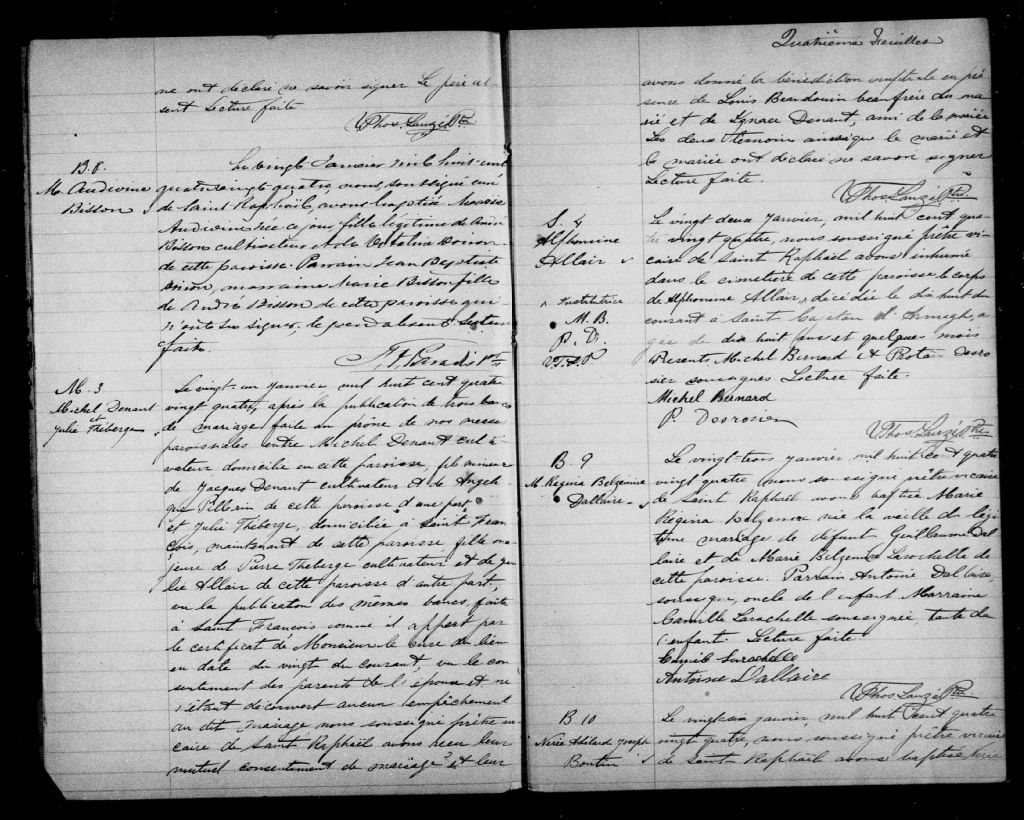 ne ont déclaré ne savoir signer Le père ab-
sent Lecture faite
Thos. Lauzé Ptre
B. 8.
M. Audivine
Bisson
Le vingt Janvier mil huit-cent
quatrevingt quatre, nous soussigné curé
de Saint Raphaël, avons baptisé Marie
Audivine née ce jour, fille légitime de André
Bisson cultivateur et de
de cette paroisse. Parrain Jean Baptiste
marraine Marie Bisson fille
de André Bisson de cette paroisse qui
n'ont su signer. le père absent Lecture
faite.
Ptre
M. 3
Michel Denaut
et
Julie Théberge
Le vingt-un janvier mil huit cent quatre
vingt quatre, après la publication de trois bancs
de mariage faite au prône de nos messes
paroissiales entre Michel Denaut culti-
vateur domicilié en cette paroisse, fils mineur
de Jacques Denaut cultivateur et de Angèli-
que de cette paroisse d'une part,
et Julie Théberge, domiciliée à Saint Fran-
çois, maintenant de cette paroisse fille ma-
jeure de Pierre Théberge cultivateur et de Ju-
lie Allair de cette paroisse d'autre part;
vu la publication des mêmes bancs faite
à Saint François comme il appert par
le certificat de Monsieur le curé du lieu
en date du vingt du courant; vu le con-
sentement des parents de l'époux et ne
s'étant découvert aucun empêchement
au dit mariage nous soussigné prêtre vi-
caire de Saint Raphaël avons reçu leur
mutuel consentement de mariage et leur
Quatrième Feuillet
avons donné la bénédiction nuptiale en pré-
sence de Louis Beaudouin beaufrère du ma-
rié et de Ignace Denaut ami de la mariée
Les deux témoins ainsi que le marié et
la mariée ont déclaré ne savoir signer
Lecture faite
Thos Lauzé Ptre
S. 4
Alphonsine
Allair
Institutrice
M. B.
P. D.
Le vingt deux janvier, mil huit cent qua-
tre vingt quatre, nous soussigné prêtre vi-
caire de Saint Raphaël avons inhumé
dans le cimetière de cette paroisse le corps
de Alphonsine Allair, décédée le dix huit du
courant à Saint Cajetan d'Armagh, a-
gée de dix huit ans et quelques mois
Présents Michel Bernard et Desro-
sier soussignés Lecture faite.
Michel Bernard
P. Desrosier
Thos Lauzé Ptre
B. 9
M. Régina Belzémire
Dallaire
Le vingt-trois janvier mil huit cent quatre
vingt quatre nous soussigné prêtre vicaire
de Saint Raphaël avons baptisé Marie
Régina Belzémire née la veille du légi-
time mariage de défunt Guillaume Dal-
laire et de Marie Larochelle de
cette paroisse. Parrain Antoine Dallaire
soussigné, oncle de l'enfant Marraine
Camille Larochelle soussignée, tante de
l'enfant. Lecture faite.
Camile Larochelle
Antoine Dallaire
Thos Lauzé Ptre
B 10
Nérée Abilard Joseph
Boutin
Le vingt six janvier, mil huit cent quatre
vingt quatre, nous soussigné prêtre vicaire
de Saint Raphaël avons baptisé Nérée